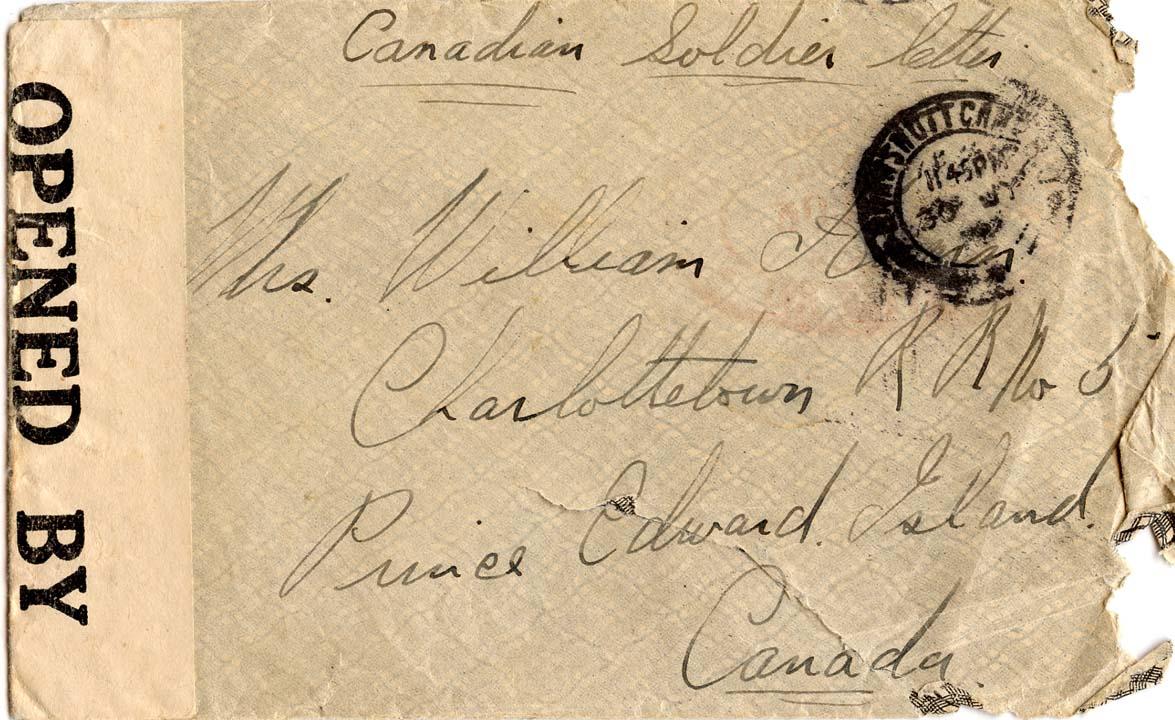 Canadian Soldier letter
OPENED BY
BRAMSHOTT CAMP
11 45 PM
30
Mrs. William
Charlottetown R R No 5
Prince Edward Island.
Canada.